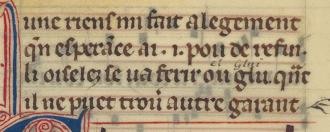 une riens mi fait alegement
qñ esperãce ai .i. pou de refui.
el glui
li oiselez se va ferir ou glu. quãt
il ne puet trouũ autre garant